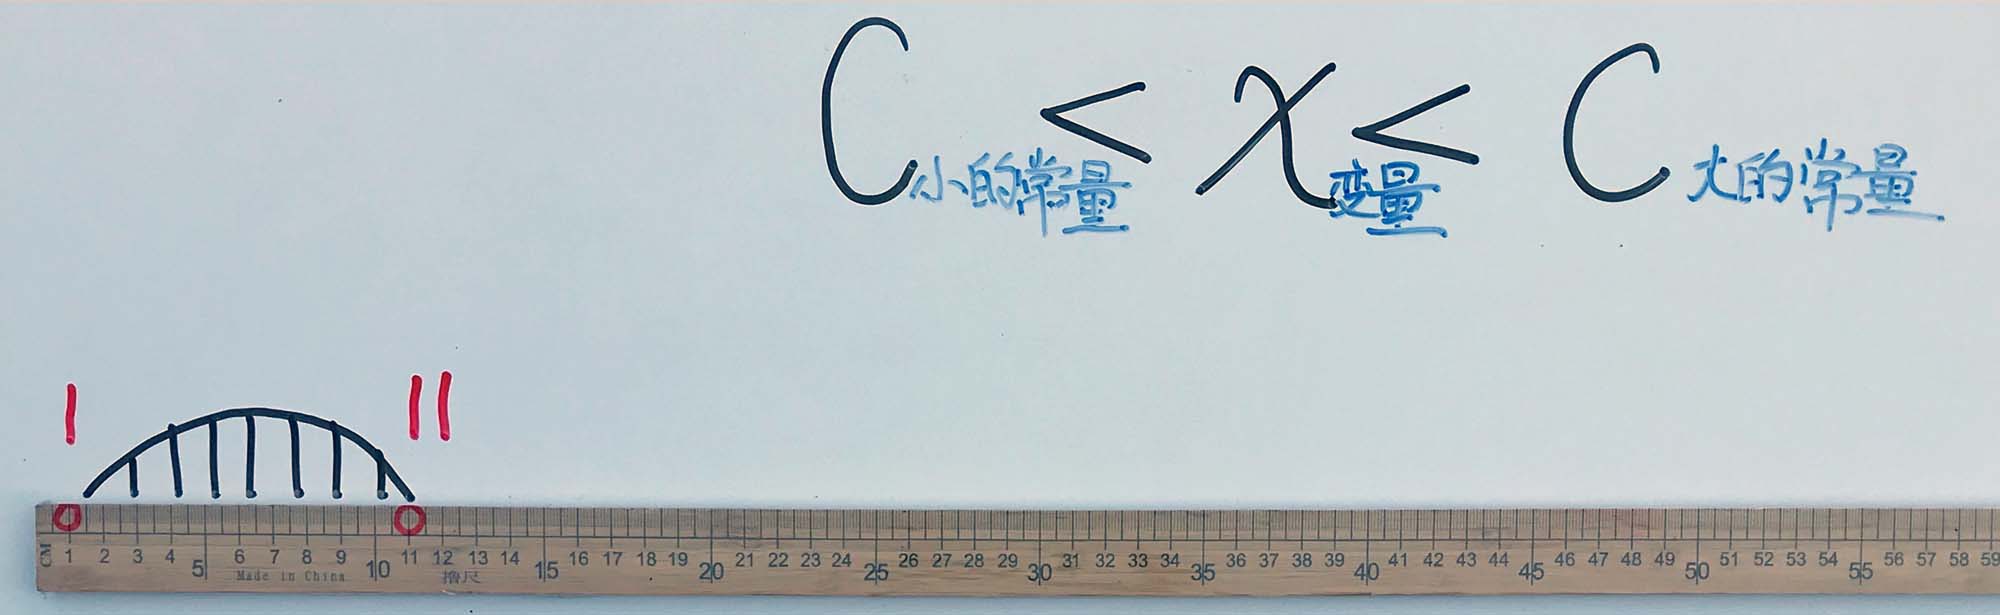 C小的常量 < x变量 < C大的常量
1 11
CM 1 2 3 4 5 6 7 8 9 10 11 12 13 14 15 16 17 18 19 20 21 22 23 24 25 26 27 28 29 30 31 32 33 34 35 36 37 38 39 40 41 42 43 44 45 46 47 48 49 50 51 52 53 54 55 56 57 58 59
Made in China